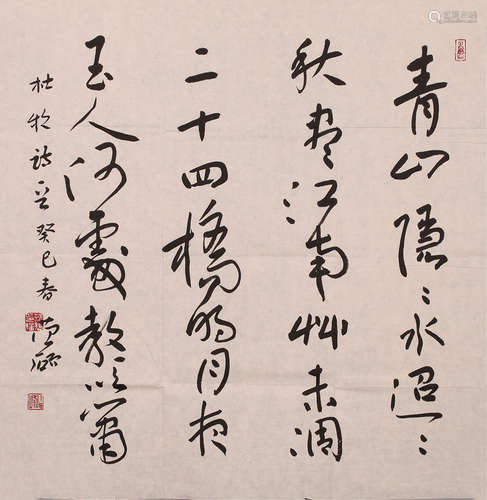 青山隱〻水迢〻
秋盡江南艸未凋
二十四橋明月夜
玉人何處教吹簫
杜牧詩一首癸巳春